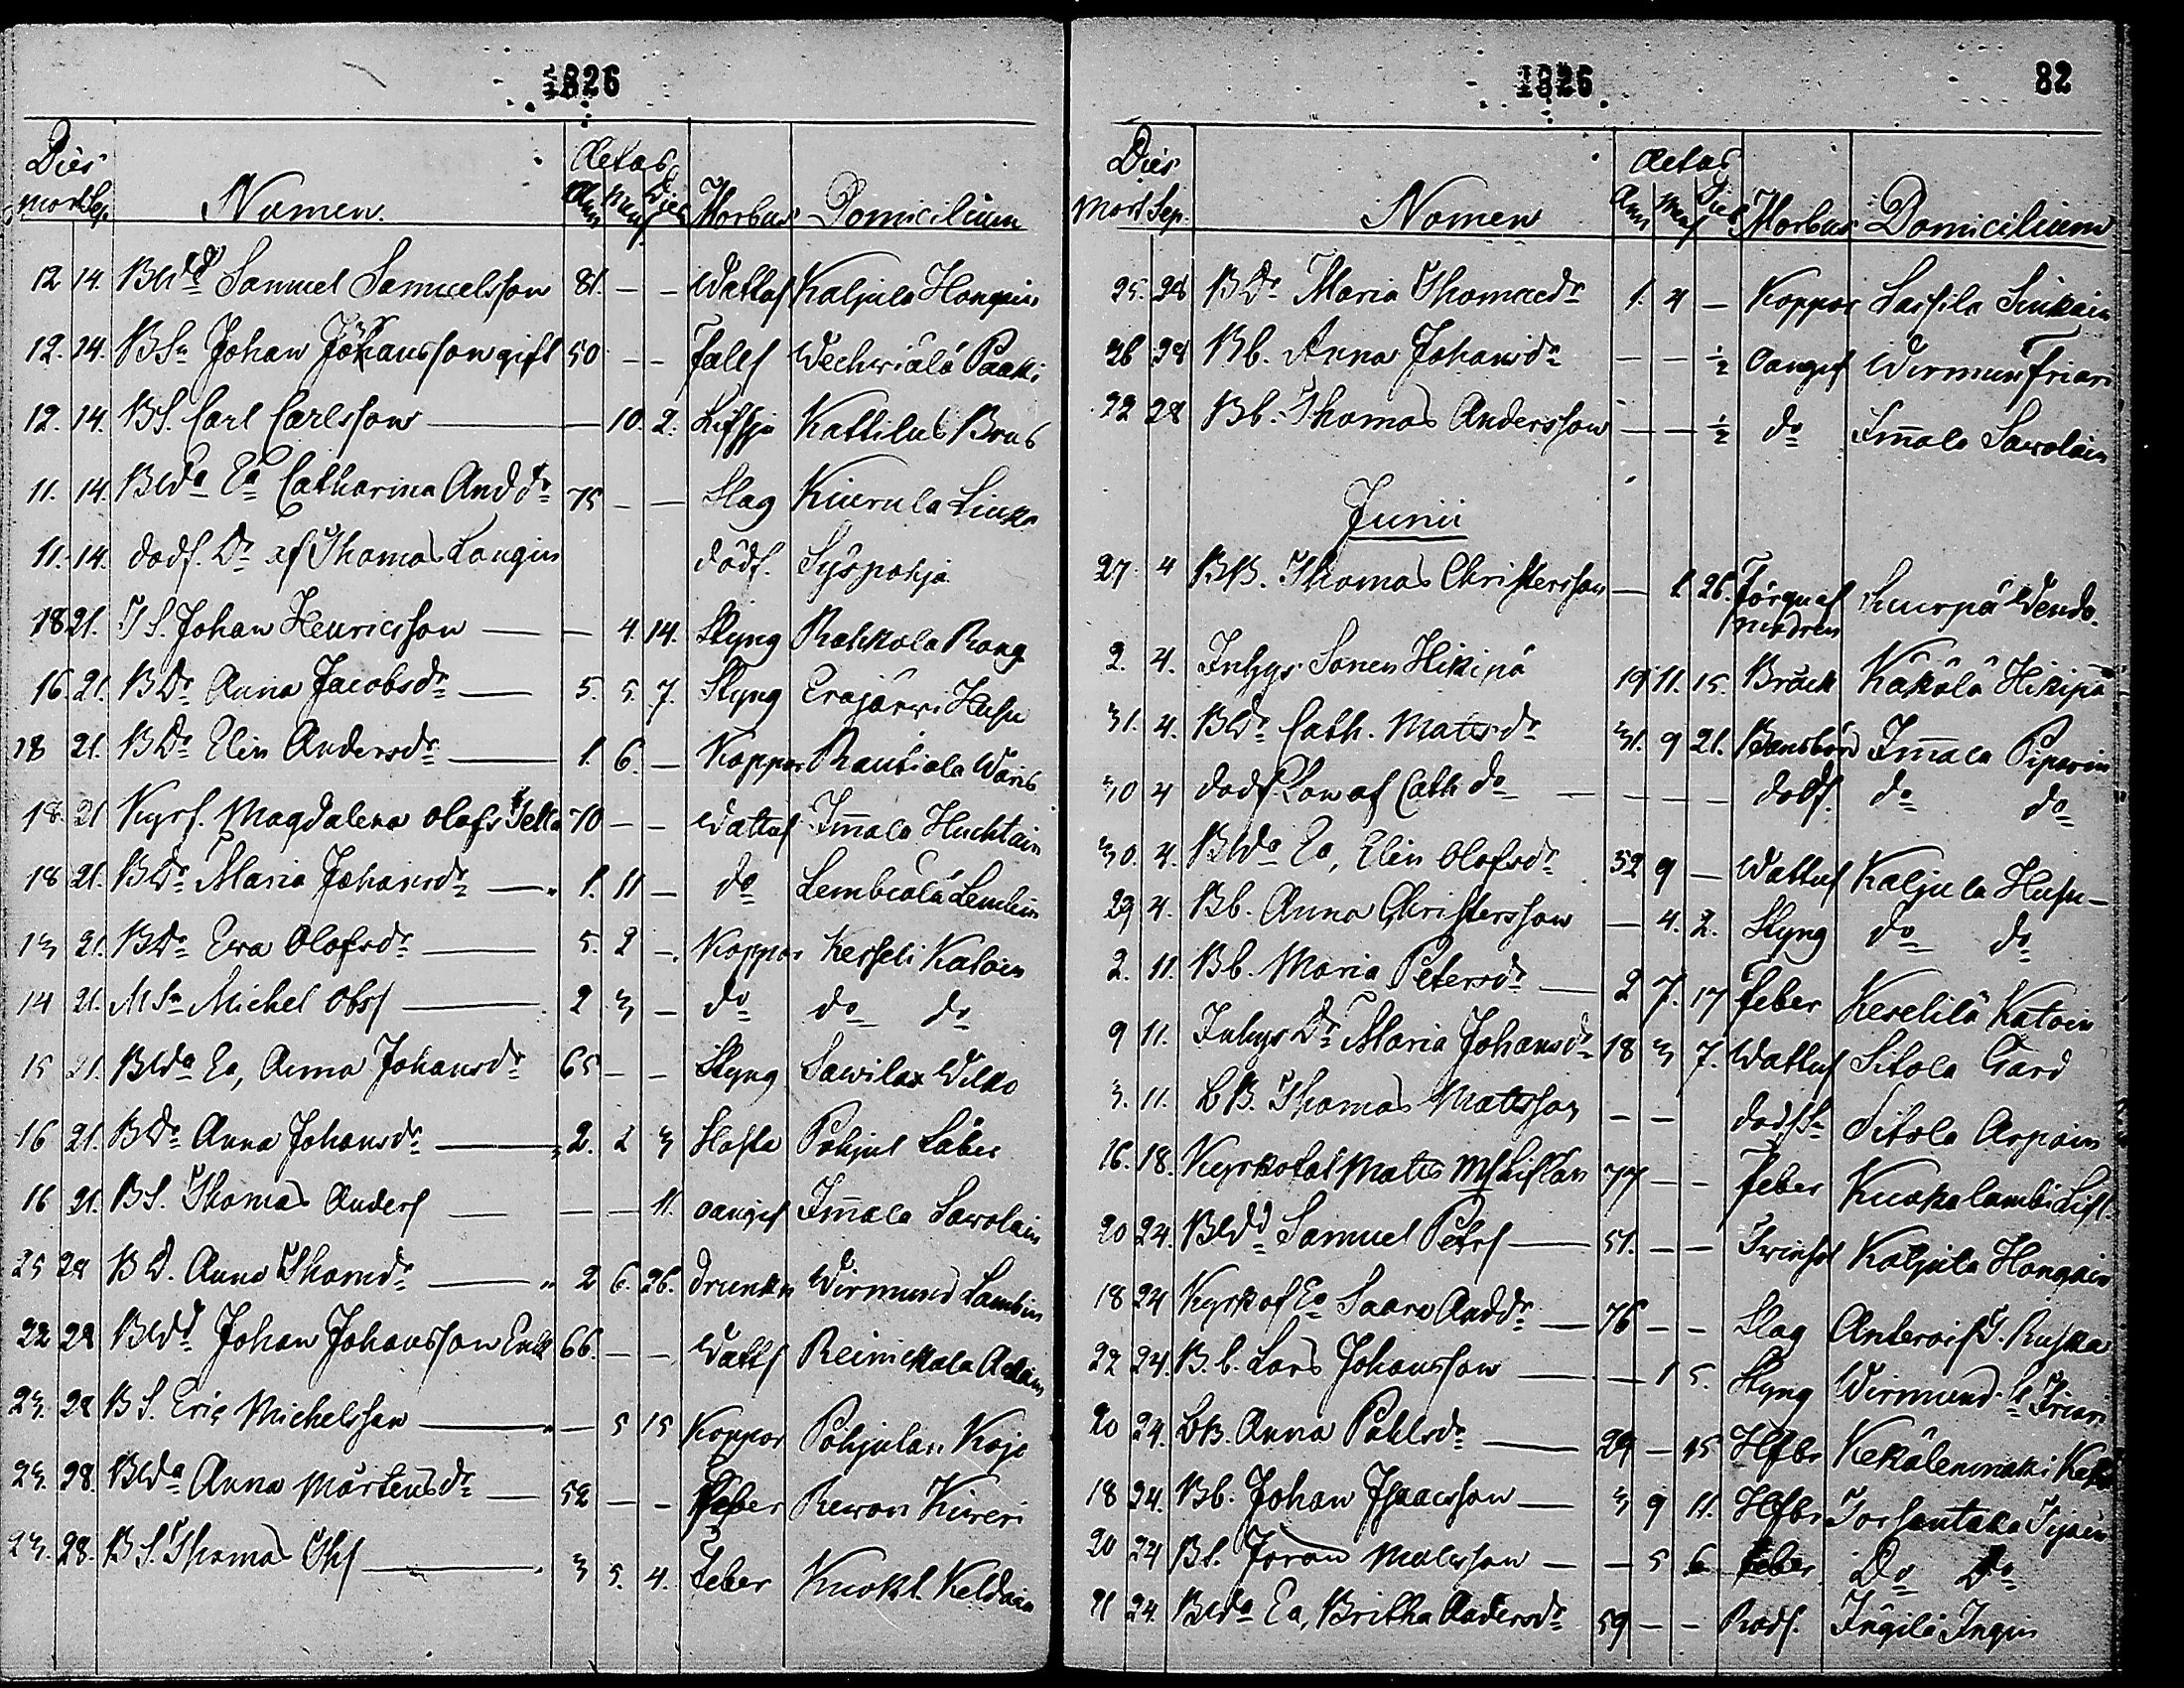 1826
Dies Aetas
mort Sep. Nomen. Ann Mens Dies Morbus Domicilium
12 14. BWd Samuel Samuelsson 81. – – Wattus Kaljula Honqain
12. 14. BSn Johan Johansson gift 50 – – Falls Wechwiälä Paaki
12. 14. BS. Carl Carlsson — 10. 2. Kattilus Brus
11. 14. BWda Ea Catharina And dr 75 – – Slag Kiurula Liuka
11. 14. dödf. Dr af Thomas Laugin dödf. Syspohja
18 21. TS. Johan Henricsson — – 4. 14. Styng Rahkola Rong
16. 21. BDr Anna Jacobsdr — 5. 5. 7. Styng Eräjärwi Husu
18 21. BDr Elin Andersdr — 1. 6. – Koppor Rautiala Waris
18. 21 Kyrf. Magdalena Olofs 70 – – Wattus Imala Huchtain
18 21. BDr Maria Johansdr — 1. 11 – do Lembiälä Lembin
13 21. BDr Ewa Olofsdr — 5. 2 –. Koppor Kesseli Katain
14 21. MSn Michel Obss — 2 3 – do do do
15 21. BWda Ea, Anna Johansdr 65 – – Styng Sawilax Wilko
16 21. BDr Anna Johansdr — 2. 2 3 Hosta Pohjul Läber
16 21. BS. Thomas Anders — – – 11. oangif Imala Sawolain
25 28 BD. Anna Thomdr — 2 6. 26. drunkn Wirmund Lambin
22 28 BWd Johan Johansson Enck 66. – – Watts Reinickala Adam
23. 28 BS. Eric Michelsson — – 5 15 Koppor Pohjulan Kojo
23. 28. BWda Anna Mårtensdr — 52 – – Feber Rewon Kiweri
23. 28. BS. Thomas — 3 5. 4. Feber Kuokl. Keldain
1826 82
Dies Aetas
Mort Sep. Nomen Ann Mens Dies Morbus Domicilium
25. 28 BDr Maria Thomasdr 1. 4 – Koppor Lassila Sinkain
26 28 Bb. Anna Johansdr – – ½ Oangif Wirmun Friari
22 28 Bb. Thomas Andersson – – ½ do Imala Sawolain
Junii
27 4 BB. Thomas Christersson – 1. 26. Förqu af modren Wendo.
2. 4. Inhys Sonen Hikipä 19 11. 15. Bråck Käkölä Hikipä
31. 4. BWdr Cath. Matsdr 31. 9 21. Barnsbörd Imala Piparin
30 4 dödf. Son af Cath dr — – – – dödf. do do
30. 4. BWda Ea, Elin Olofsdr 52 9 – Wattus Kaljula Husu
29 4. Bb. Anna Christersson – 4. 2. Styng do do
2. 11. Bb. Maria Petersdr — 2 7. 17 Feber Keselilä Katoin
9 11. Inhys Dr Maria Johansdr 18 3 7. Wattus Sitola Gard
3. 11. LB. Thomas Matsson – – dödf Sitola Arpain
16. 18. Kyrkofat Mats 77 – – Feber Kuokalambi
20 24. BWd Samuel Petrs — 51. – – Twinsot Kaljula Honqain
18 24 Kyrkof Ea Saara Anddr — 76 – – Slag Ruska
22 24. B. b. Lars Johansson — – 1 5. Styng Wirmund Friari
20 24. LB. Anna Påhlsdr — 29 – 15 Hlfbr Kekäleenmäki
18 24. Bb. Johan Isaacsson — 3 9 11. Hlfbr Torsantaka
20 24 BS. Joran Matsson — – 5 6 Feber Do Do
21 24. BWda Ea, Britha Andersdr 59 – – Rods. Ingilä Ingin